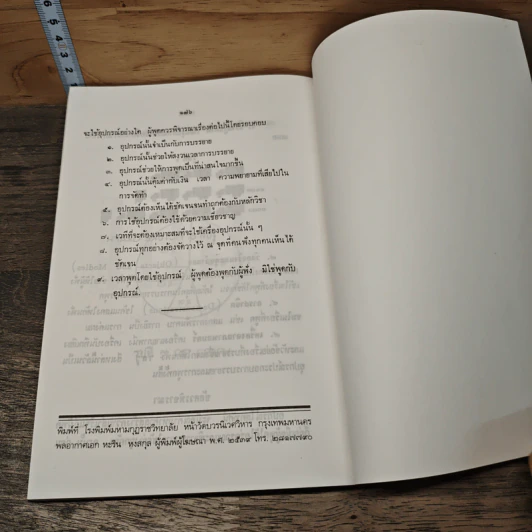 ๑๗๖
จะใช้อุปกรณ์อย่างใด ผู้พูดควรพิจารณาเรื่องต่อไปนี้โดยรอบคอบ
๑. อุปกรณ์นั้นจำเป็นกับการบรรยาย
๒. อุปกรณ์นั้นช่วยให้สงวนเวลาการบรรยาย
๓. อุปกรณ์ช่วยให้การพูดเป็นที่น่าสนใจมากขึ้น
๔. อุปกรณ์นั้นคุ้มค่ากับเงิน เวลา ความพยายามที่เสียไปใน
การจัดทำ
๕. อุปกรณ์ต้องเห็นได้ชัดเจนจนทำถูกต้องกับหลักวิชา
๖. การใช้อุปกรณ์ต้องใช้ด้วยความเชี่ยวชาญ
๗. เวทีที่จะต้องเหมาะสมที่จะใช้เครื่องอุปกรณ์นั้น ๆ
๘. อุปกรณ์ทุกอย่างต้องจัดวางไว้ ณ จุดที่คนฟังทุกคนเห็นได้
ชัดเจน
๙. เวลาพูดโดยใช้อุปกรณ์ ผู้พูดต้องพูดกับผู้ฟัง มิใช่พูดกับ
อุปกรณ์.
พิมพ์ที่ โรงพิมพ์มหามกุฏราชวิทยาลัย หน้าวัดบวรนิเวศวิหาร กรุงเทพมหานคร
พลอากาศเอก หะริน หงสกุล ผู้พิมพ์ผู้โฆษณา พ.ศ. ๒๕๓๙ โทร. ๒๘๑๗๗๙๐